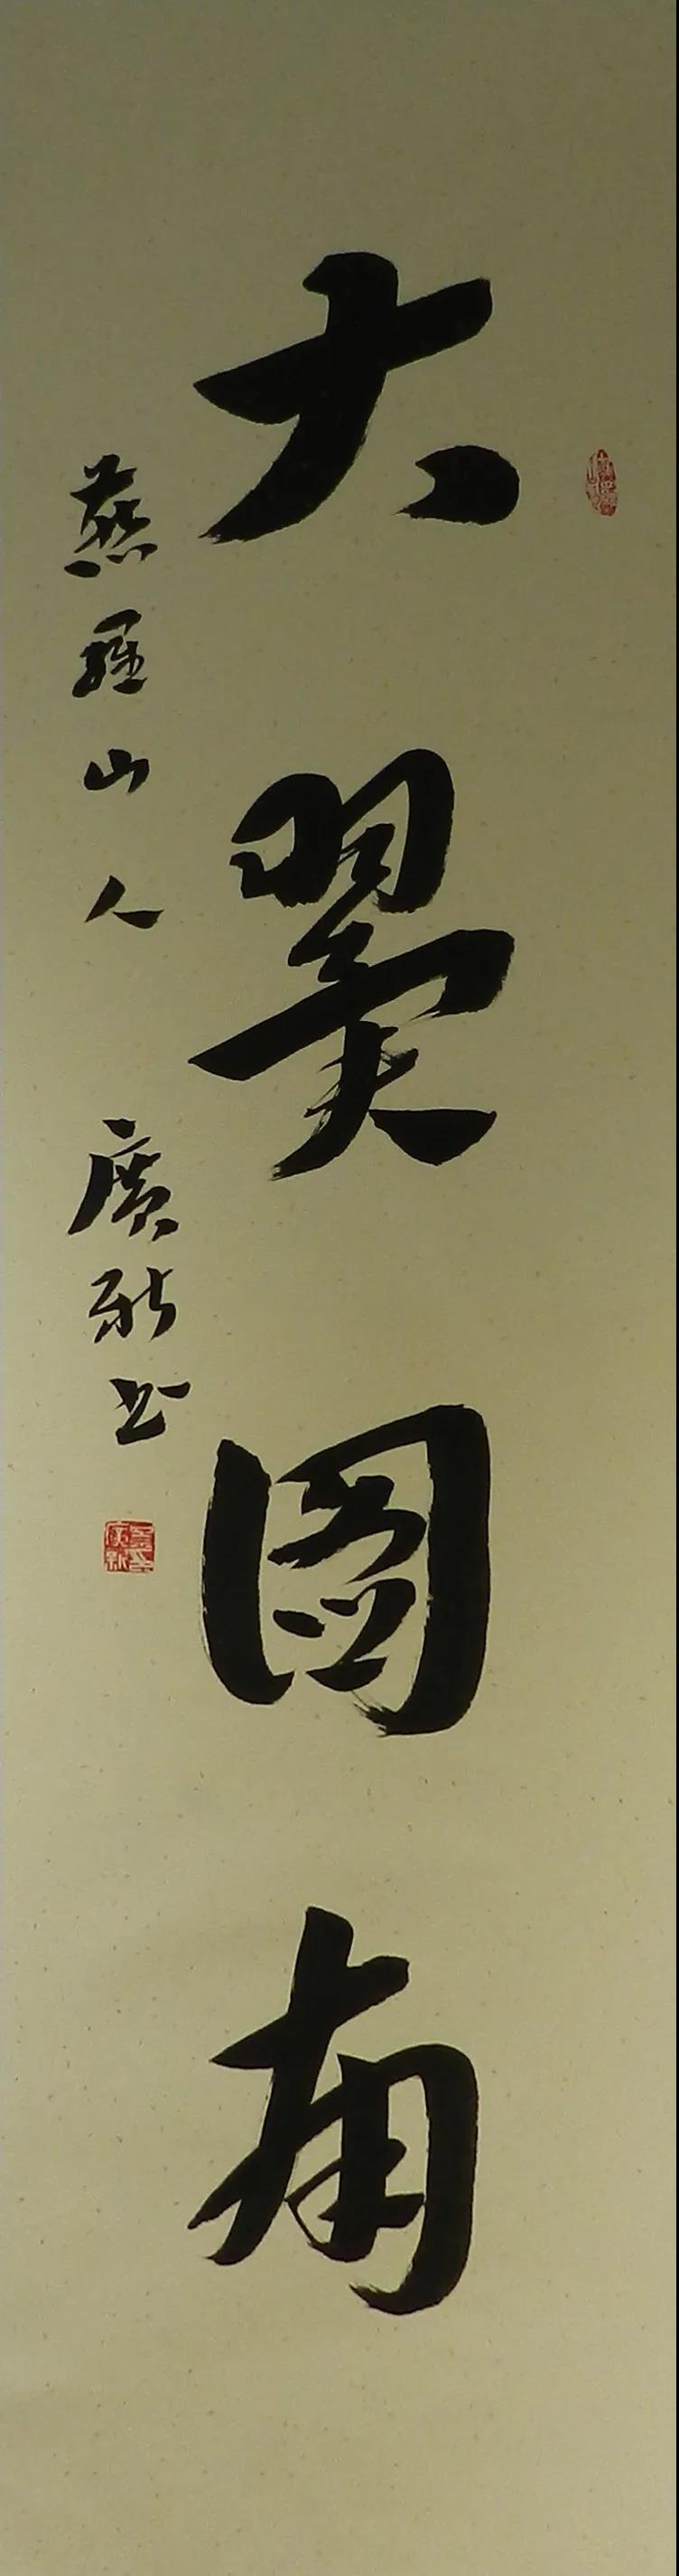 大翼圖南
燕羅山人 廣新书